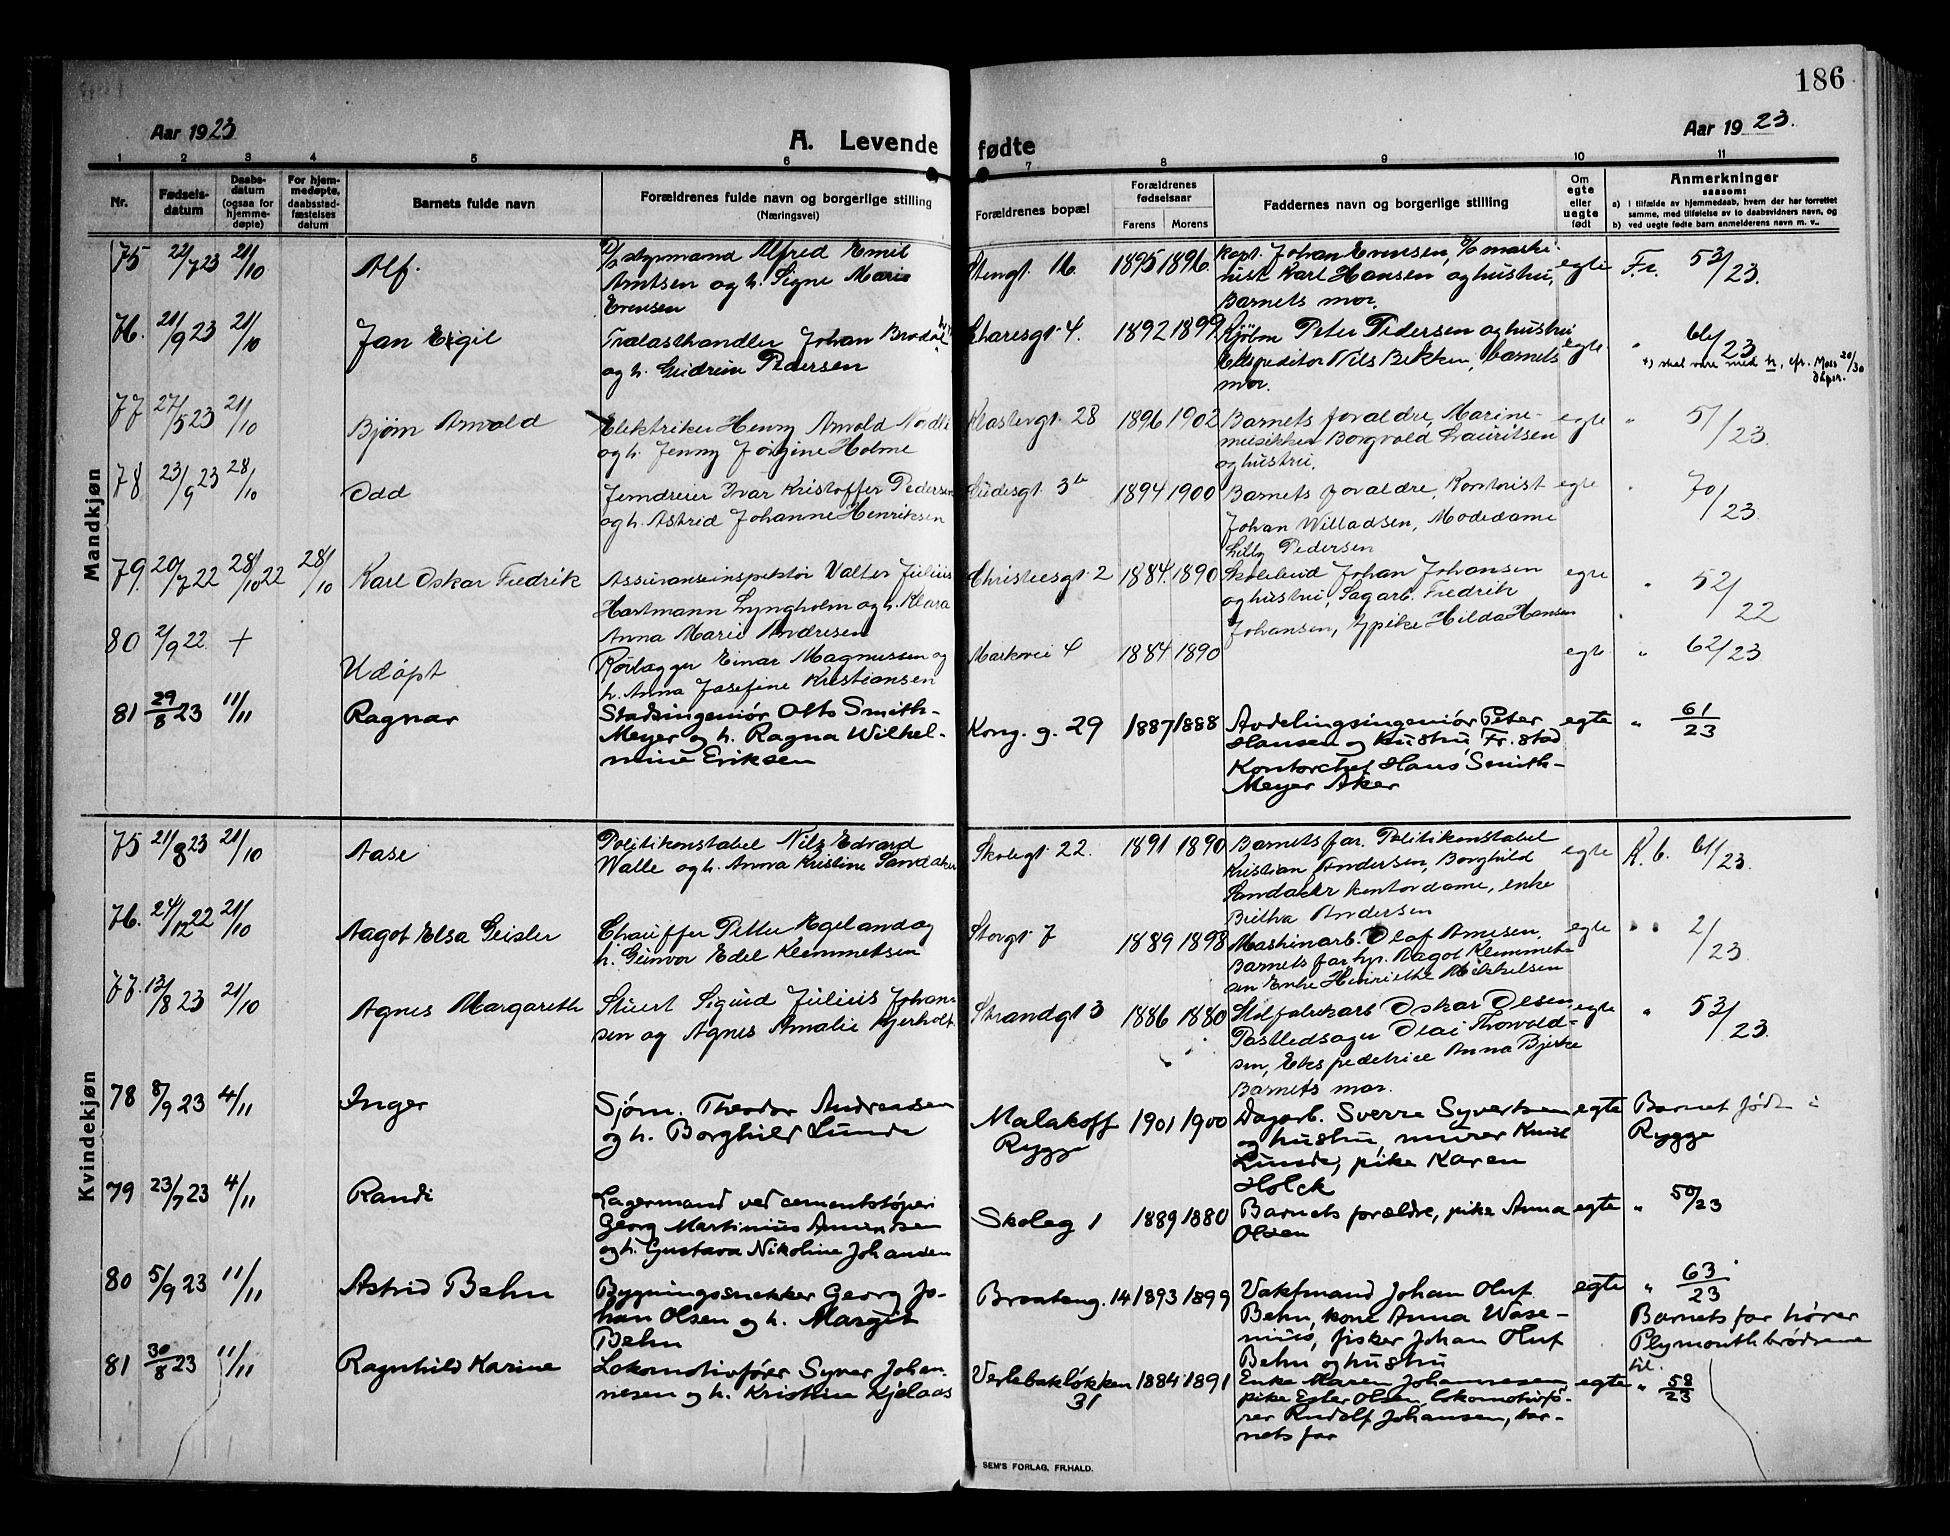 186
Aar 1923
A. Levende fødte
Aar 1923.
1 2 3 4 5 6 7 8 9 10 11
Nr.
Fødsels-
datum
Daabs-
datum
(ogsaa for
hjemme-
døpte)
For hjem-
medøpte,
daabsstad-
fæstelses
datum
Barnets fulde navn
Forældrenes fulde navn og borgerlige stilling
(Næringsvei)
Forældrenes bopæl
Forældrenes
fødselsaar
Farens Morens
Faddernes navn og borgerlige stilling
Om
egte
eller
uegte
født
Anmerkninger
saasom:
a) i tilfælde av hjemmedaab, hvem der har forrettet
samme, med tilføielse av to daabsvidners navn, og
b) ved uegte fødte barn anmelderens navn m. v..
Mandkjøn
75 22/7 23 21/10 Alf. styrmand Alfred Emil Stengt. 16. 1895 1896. kapt. Johan Evensen, maski- egte Fr. 53/23.
Arntsen og h. Signe Marie
nist Karl Hansen og hustru,
Evensen
Barnets mor.
76. 21/9 23 21/10 Jan Eigil Trælasthandler Johan Brodal 4. 1892 1899. Kjøbm Peter Pedersen og hustru egte " 66/23
og h. Gudrun Pedersen
Ekspeditor Nils Bekken, barnets
mor.
skal være med h, cfr. Moss 20/30
77 27/5 23 21/10 Bjørn Arnold Elektriker Henry Arnold Klostergt. 28 1896 1902 Barnets forældre, Marine- egte " 51/23.
og h. Jenny Jørgine Holme
musikker Borgvald Lauritsen
og hustru.
78 23/9 23 28/10 Odd Jerndreier Ivar Kristoffer Pedersen 1894 1900 Barnets forældre, Kontorist egte " 70/23.
og h. Astrid Johanne Henriksen
Johan Willadsen, Modedame
Lilly Pedersen
79. 20/7 22 28/10 22 28/10 Karl Oskar Fredrik Assuranseinspektør Valter Julius Christiesgt. 2 1884. 1890 Skolebud Johan Johansen egte " 52/22
Hartmann Lyngholm og h. Klara
og hustru, Sagarb. Fredrik
Anna Marie Andresen
Johansen, pike Hilda Hansen
80 2/9 22. + Udøpt Rørlægger Einar Magnussen og Markvei 4 1884 1890 egte " 62/23
h. Anna Josefine Kristiansen
81 29/8 23 11/11 Ragnar Stadsingeniør Otto Smith- Kong. g. 29 1887 1888 Avdelingsingeniør Peter egte " 61/23
Meyer og h. Ragna Wilhel-
Hansen og hustru, Fr. stad
mine Eriksen
Kontorchef Hans Smith-
Meyer Aker
Kvindekjøn
75 21/8 23 21/10 Aase Politikonstabel Nils Edvard Skolegt. 22. 1891 1890 Barnets far. Politikonstabel egte K. b. 61/23.
Walle og h. Anna Kristine Sandaker
Kristian Andersen, Borghild
Sandaker kontordame, enke
Andersen
76. 24/12 22 21/10 Aagot Elsa Geisler Chauffør Petter Egeland og Storgt 7 1889 1898 Maskinarb. Olaf Arnesen, egte " " 2/23
h. Gunvor Edel Klemmetsen
Barnets far hp. Aagot Klemmet-
sen Enke Henriette Mikkelsen
77. 12/8 23 21/10 Agnes Margareth Stuert Sigurd Julius Johan- Strandgt 3 1886 1880 Oskar Olsen egte " 53/23.
sen og Agnes Amalie Gjerholt
Postledsager Olai Thorvald-
sen, Ekspeditrice Anna Bjerke
Barnets mor.
78 8/9 23 4/11 Inger Sjøm. Theodor Andreassen Malakoff 1901 1900 Dagarb. Sverre Syvertsen egte Barnet født i
og h. Borghild Lunde Rygge og hustru, murer Knut Rygge
Lunde, pike Karen
Holck
79 23/7 23 4/11 Randi Lagermand ved cementstøperi Skoleg 1 1889 1880 Barnets forældre, pike Anna egte " 50/23
Georg Martinius Amundsen Olsen
og h. Gustava Nikoline Johansen
80 5/9 23 11/11 Astrid Behn Bygningssnekker Georg Jo- Braateng. 14 1893 1899 Vaktmand Johan Oluf egte " 63/23
han Olsen og h. Margit Behn, kone Anna Wase- Barnets far hører
Behn nius, fisker Johan Oluf Plymouthbrødrene
Behn og hustru til.
81 30/8 23 11/11 Ragnhild Karine Lokomotivfører Syver Johan- Verlebakløkken 1884 1891 Enke Maren Johannesen egte " 58/23
nesen og h. Kristine Kjølaas 31 pike Ester Olsen, lokomotivfø-
rer Rudolf Johansen, bar-
nets far
SEM'S FORLAG, FR.HALD.